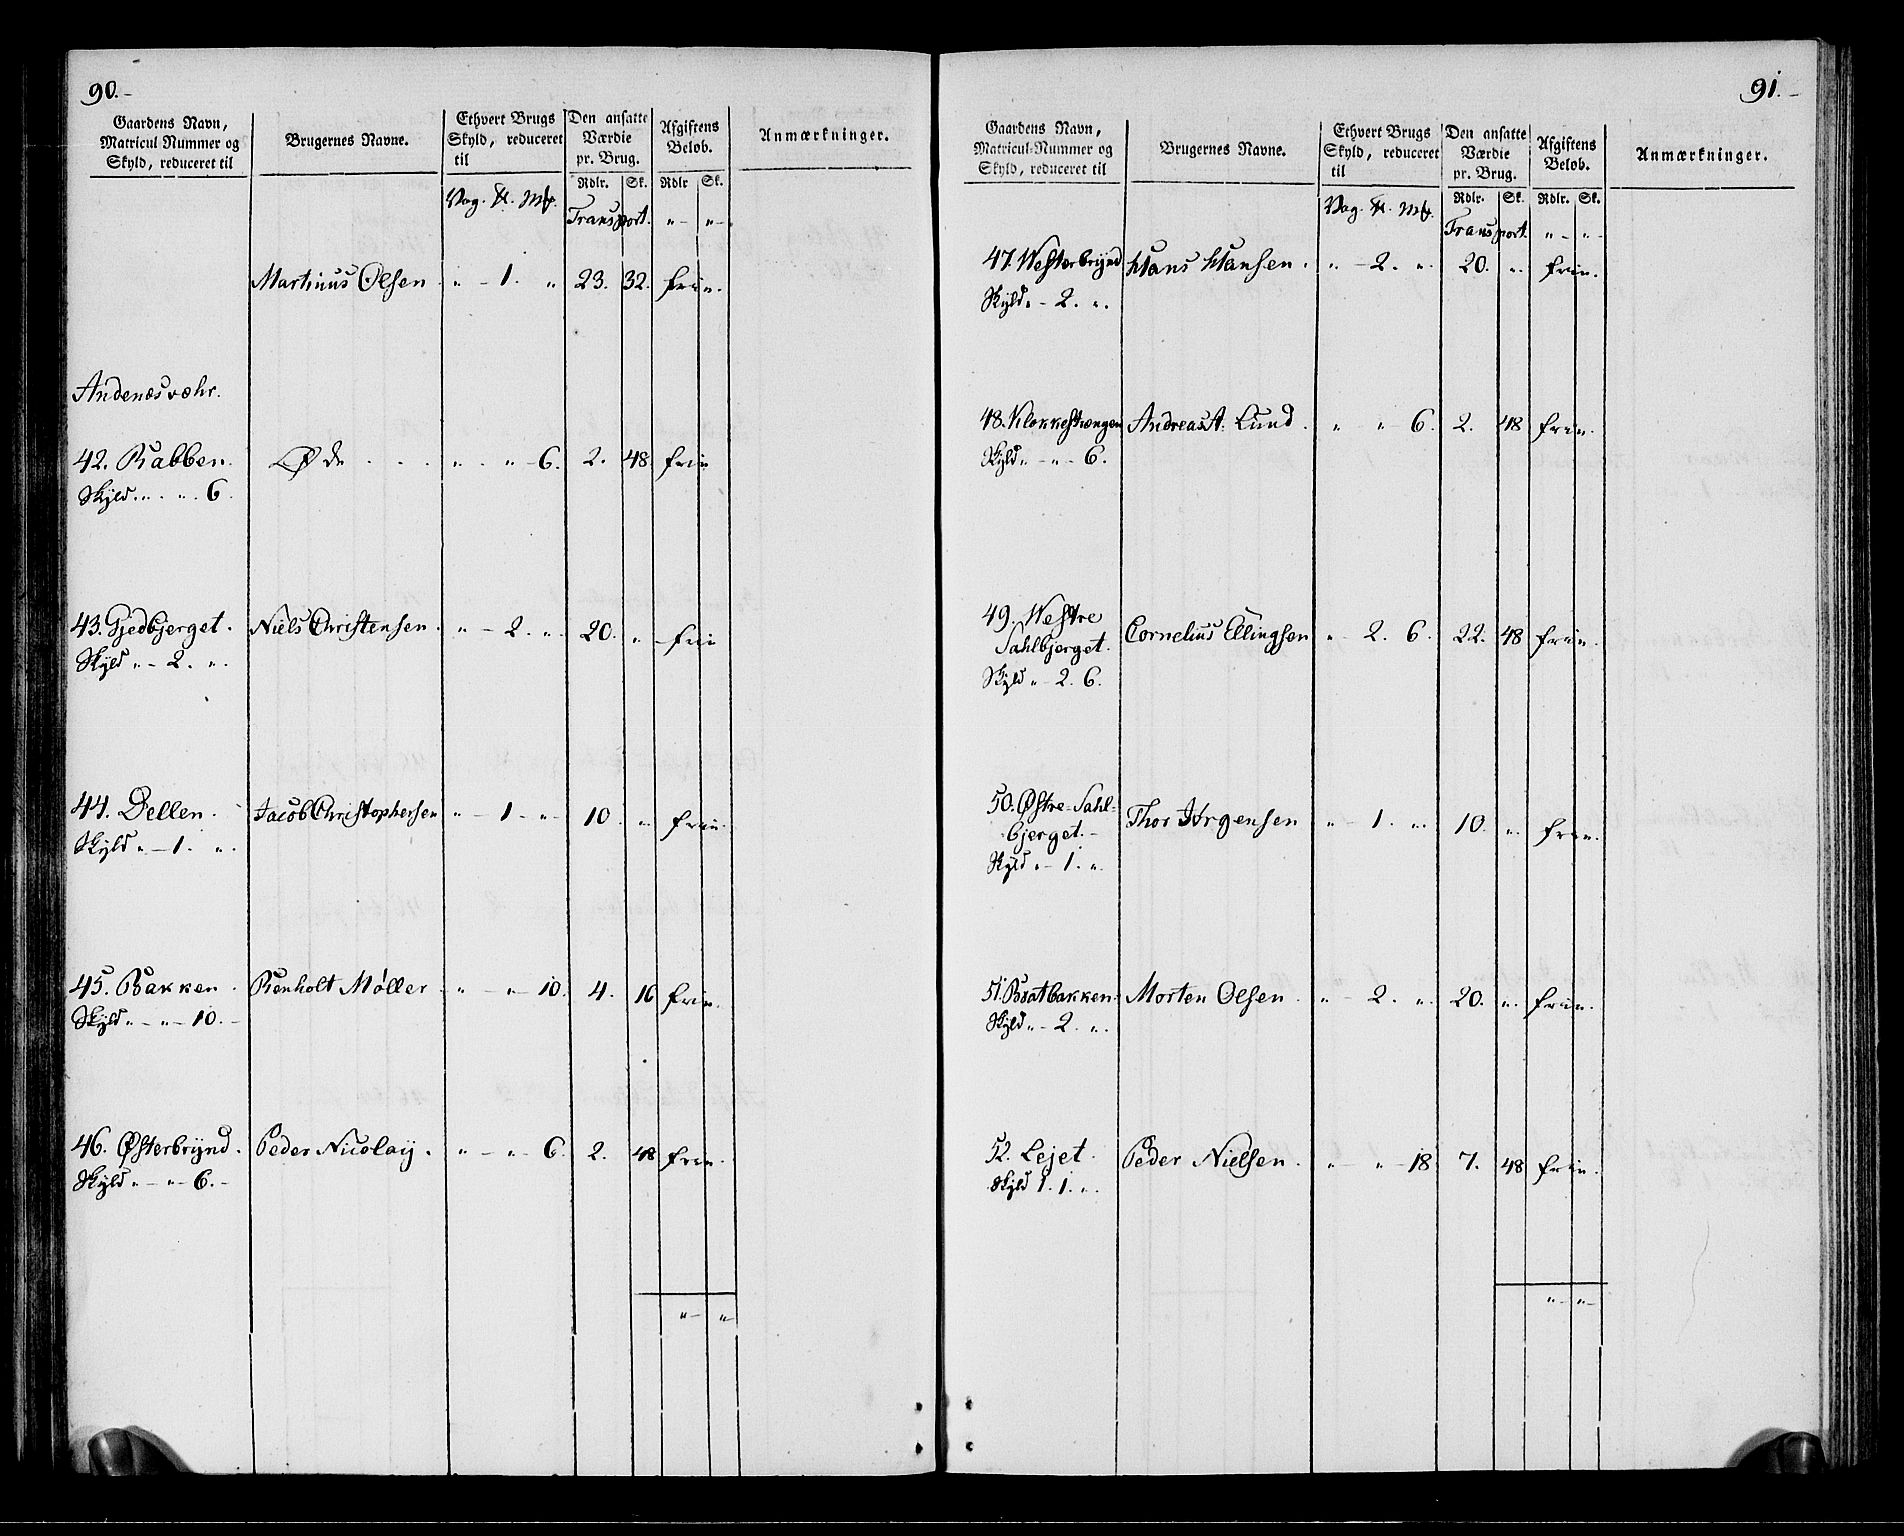 90.-
Gaardens Navn,
Matricul Nummer og
Skyld, reduceret til
Brugernes Navne.
Ethvert Brugs
Skyld, reduceret
til
Den ansatte
Værdie
pr. Brug.
Afgiftens
Beløb.
Anmærkninger.
Rdlr. Sk. Rdlr Sk.
Vog. ℔. Mk. Transport. " - " -
Martinus Olsen. " - 1. " 23. 32. frie.
Andenæsvæhr.
42. Rabben. Øde . . . " . " - 6. 2. 48. frie
Skyld. " . " . 6.
43. Gjedbjerget. Niels Christensen. " - 2. " . 20. " - frie
Skyld " - 2. " .
44. Dellen. Jacob Christophersen " - 1. " . 10. " . frie.
Skyld " - 1. " .
45. Bakken. Renholt Møller. " - " - 10. 4. 16 frie.
Skyld " - " - 10. -
46. Østerbrÿnd. Peder Nicolaÿ. " - " - 6. 2. 48 frie.
Skyld " - " - 6. -
" - " -
91. -
Gaardens Navn,
Matricul-Nummer og
Skyld, reduceret til
Brugernes Navne.
Ethvert Brugs
Skyld, reduceret
til
Den ansatte
Værdie
pr. Brug.
Afgiftens
Beløb.
Anmærkninger.
Rdlr. Sk. Rdlr. Sk.
Vog. ℔. Mk. Transport. " - " -
47. Westerbrÿnd Hans Hansen. " - 2. " . 20. " . frie.
Skyld. " - 2. " .
48. Klokkestrengen Andreas A. Lund. " - " - 6. 2. 48 frie.
Skyld " - " - 6.
49. Westre
Sahlbjerget. Cornelius Ellingsen " - 2. 6. 22. 48 frie.
Skyld " - 2. 6.
50. Østre-Sahl-
bjerget. - Thor Jørgensen " - 1. " . 10. " . frie.
Skyld " - 1. " .
51. Bratbakken. Morten Olsen. " - 2. " . 20. " . frie.
Skyld " - 2. " .
52. Lejet. Peder Nielsen. " - " - 18 7. 48 frie.
Skyld 1. 1. " .
" - " -